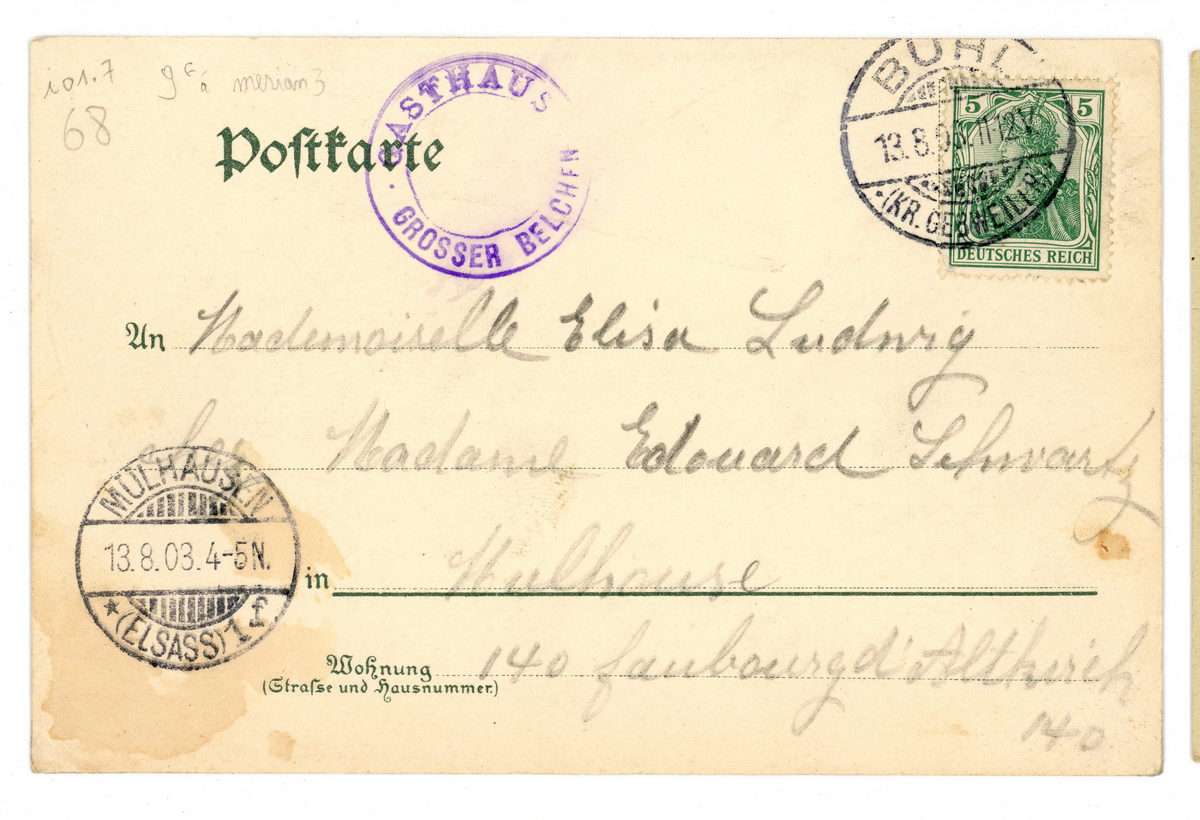 101.7 9e à merian 3
68
GASTHAUS
· GROSSER BELCHEN
Postkarte
BUHL
13.8.03.11-12V
*(KR. GEBWEILER)*
5 5
DEUTSCHES REICH
An Mademoiselle Elisa Ludwig
chez Madame Edouard Schwartz
MÜLHAUSEN
13.8.03.4-5N.
*(ELSASS)1f
in Mulhouse
Wohnung
(Strasse und Hausnummer)
140 faubourg d'Altkirch
140